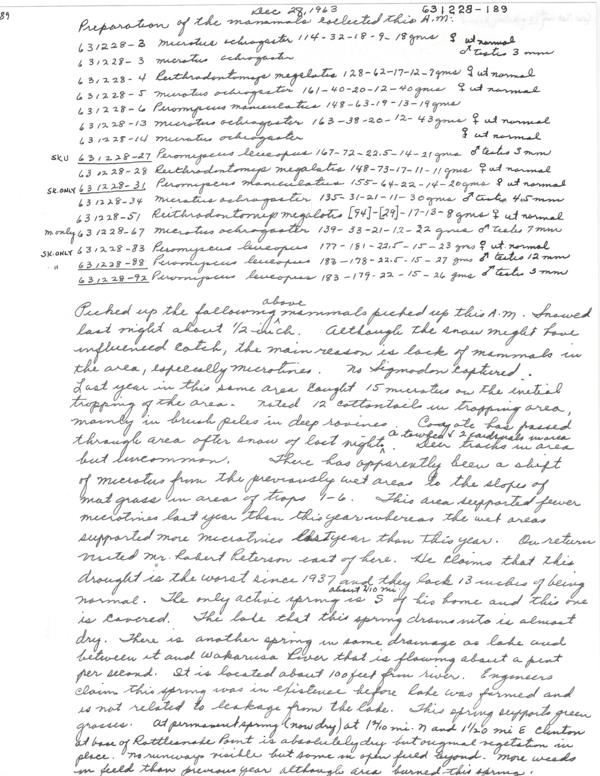 89
Dec 28, 1963
631228-189
Preparation of the mammals collected this A.M.:
631228-2 Microtus ochrogaster 114-32-18-9-18gms ♀ ut normal
631228-3 microtus ochrogaster ♂ testis 3 mm
631228-4 Reithrodontomys megalotis 128-62-17-12-7gms ♀ ut normal
631228-5 microtus ochrogaster 161-40-20-12-40gms ♀ ut normal
631228-6 Peromyscus maniculatus 148-63-19-13-19gms
631228-13 microtus ochrogaster 163-38-20-12-43gms ♀ ut normal
631228-14 microtus ochrogaster ♀ ut normal
SKU 631228-27 Peromyscus leucopus 167-72-22.5-14-21gms ♂ testis 3mm
631228-28 Reithrodontomys megalotis 148-73-17-11-11gms ♀ ut normal
SK.ONLY 631228-31 Peromyscus maniculatus 155-64-22-14-20gms ♀ ut normal
631228-34 microtus ochrogaster 135-31-21-11-30gms ♂ testis 4.5mm
631228-51 Reithrodontomys megalotis [94]-[29]-17-13-8gms ♀ ut normal
m.only 631228-67 microtus ochrogaster 139-33-21-12-22 gms ♂ testis 7mm
SK.ONLY 631228-83 Peromyscus leucopus 177-181-22.5-15-23 gms ♀ ut. normal
" 631228-88 Peromyscus leucopus 183-178-22.5-15-27 gms ♂ testis 12mm
631228-92 Peromyscus leucopus 183-179-22-15-26 gms ♂ testis 3mm
Picked up the following above mammals picked up this A.M. Snowed
last night about 1/2-inch. Although the snow might have
influenced catch, the main reason is lack of mammals in
the area, especially microtines. No Sigmodon captured.
Last year in this same area caught 15 microtus on the initial
trapping of the area. Noted 12 cottontails in trapping area,
mainly in brush piles in deep ravines. Coyote has passed
through area after snow of last night. a towhee & 2 cardinals in area Deer tracks in area
but uncommon. There has apparently been a shift
of microtus from the previously wet areas to the slopes of
mat grass in area of traps 1-6. This area supported fewer
microtines last year than this year whereas the wet areas
supported more microtines last year than this year. On return
visited Mr. Robert Peterson east of here. He claims that this
drought is the worst since 1937 and they lack 13 inches of being
normal. The only active spring is about 2/10 mi. S of his home and this one
is covered. The lake that this spring drains into is almost
dry. There is another spring in same drainage as lake and
between it and Wakarusa River that is flowing about a pint
per second. It is located about 100 feet from river. Engineers
claim this spring was in existence before lake was formed and
is not related to leakage from the lake. This spring supports green
grasses. At permanent spring (now dry) at mi. N and mi E Clinton
at base of Rattlesnake Point is absolutely dry but original vegetation in
place. No runways visible but some in open field beyond. More weeds
in field than previous year although area burned this spring.